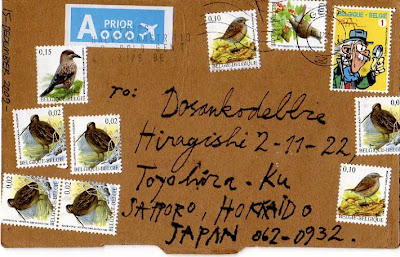 15 DECEMBER 2012
A PRIOR
0,10
BELGIQUE - BELGIË
1
0,15
BELGIQUE-BELGIË
0,02
0,02
BELGIQUE-BELGIË
BELGIQUE-BELGIË
0,02
0,02
0,02
0,10
BELGIQUE-BELGIË
TO:
Dosankodebbie
Hiragishi 2-11-22,
Toyohira-Ku
SAPPORO, HOKKAIDO
JAPAN 062-0932.